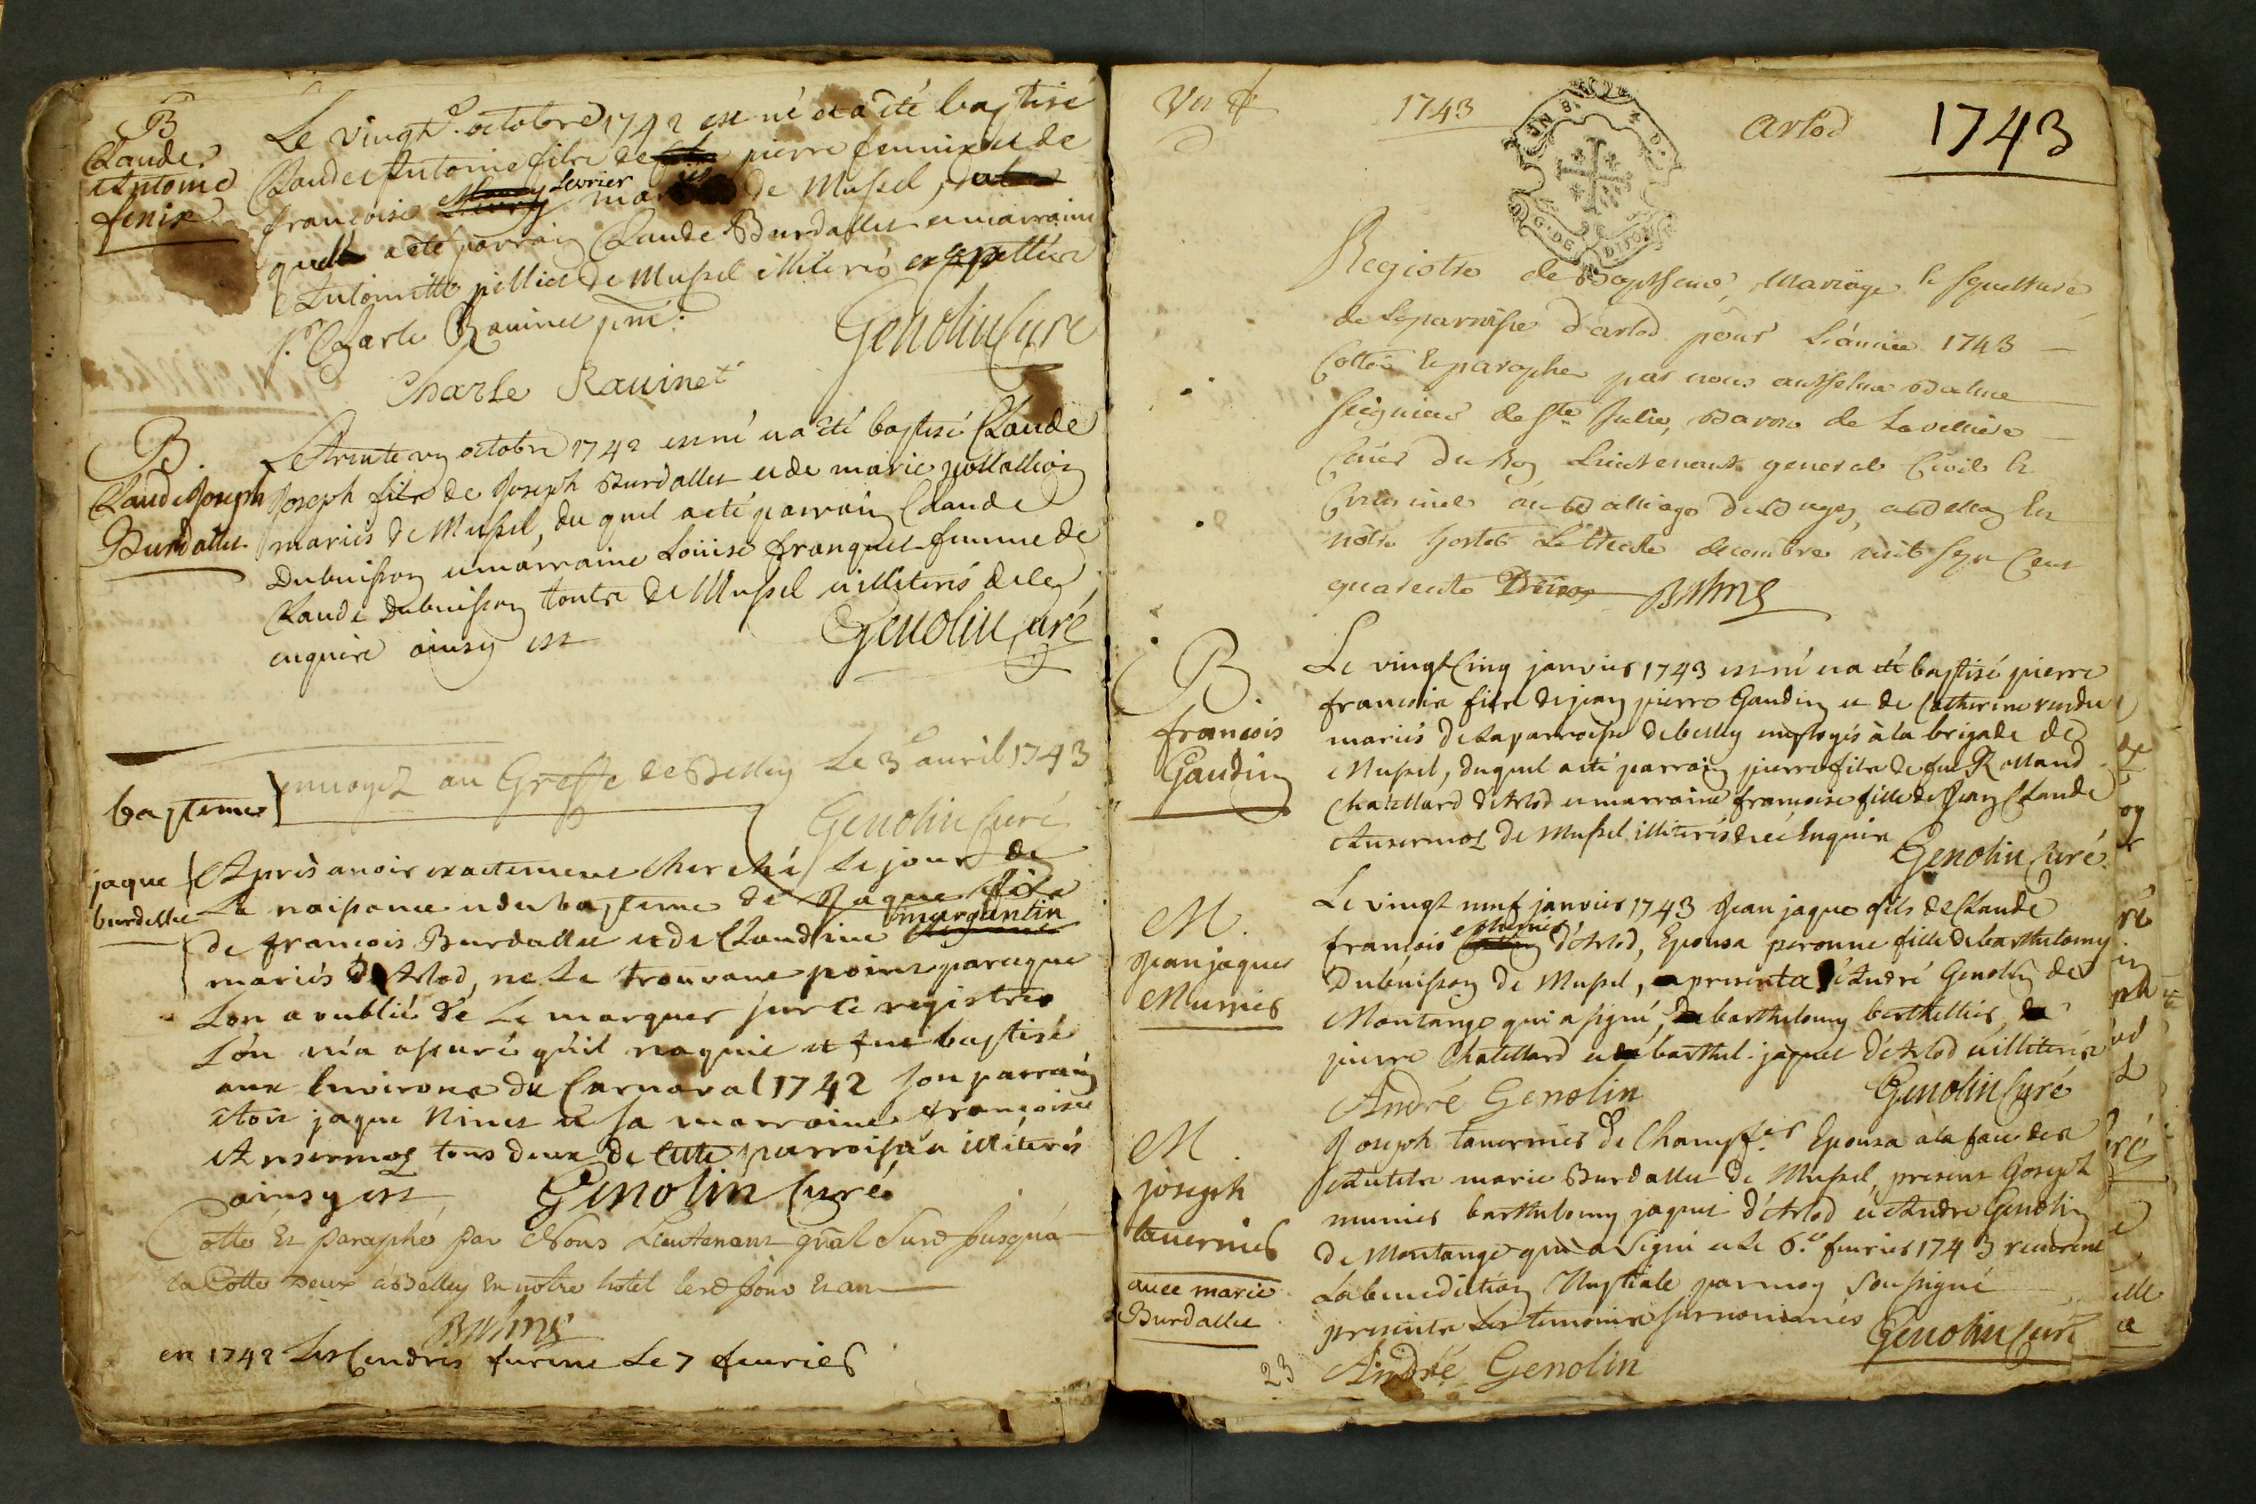 B
Claude
Antoine
fenix
Le vingt.e octobre 1742 est né et a été baptisé
Claude Antoine fils de pierre fennix et de
francoise levrier mariés de Mussel, du
quel a été parrain Claude Burdallet et marraine
Antoinette pillied de Mussel illiterés
s.r Charle Ravinet
Charle Ravinet
Genolin Curé
B
Claude Joseph
Burdallet
Le trente un octobre 1742 est né et a été baptisé Claude
Joseph fils de Joseph Burdallet et de marie
mariés de Mussel, du quel a été parrain Claude
Dubuisson et marraine Louise franquet femme de
Claude Dubuisson toute de Mussel et illiterés de ce
enquis ainsy est
Genolin Curé
envoyez au Greffe de Belley Le 3.e avril 1743
Genolin Curé
bapteme
jaque
burdallet
Après avoir exactement cherché le jour de
La naissance et du bapteme de Jaque fils
de francois Burdallet et de Claudine marguntin
mariés d'Arlod, ne Le trouvant point parceque
Lon a oublié de Le marquer sur ce registre
Lon m'a assuré qu'il naquit et fut baptisé
aux Environs du Carnaval 1742 son parrain
étoit jaque Ninet et sa marraine francoise
Ansermoz tous deux de cette parroisse illiterés
ainsy est Genolin Curé
Cotté Et paraphé par Nous Lieutenant gñal Jusqu'a
la Cotte Deux a Belley En notre hotel Jour Et an
Balme
en 1742 Les Cendres furent Le 7 feuvrier
1743
Arlod
1743
Registre de Baptheme, Mariage Et sepulture
de La parroisse d'arlod pour L'année 1743
Cotté Et paraphé par nous anthelme Balme
seigneur de Ste Julie, Baron de Lavelliere
Con.er Du Roy Lieutenant general Civil Et
Criminel au Balliage De Bugey, a Belley En
nôtre hostel Le trente decembre mil sept Cent
quarente Deux Balme
B
francois
Gaudin
Le vingt Cinq janvier 1743 est né et a été baptisé pierre
francois fils de jean pierre Gaudin et de Catherine
mariés de La parroisse de belley employés à la brigade de
Mussel, duquel a été parrain pierre fils de feu Rolland
Chatellard d'Arlod et marraine francoise fille de Jean Claude
Ansermoz de Mussel illiterés de ce Enquis
Genolin Curé
M.
Jean jaques
Munier
Le vingt neuf janvier 1743 Jean jaque fils de Claude
francois d'Arlod, Epousa peronne fille de barthelemy
Dubuisson de Mussel, presents André Genolin de
Montange qui a signé, barthelemy berthellier,
pierre Chatellard et barthel. jaquet d'Arlod illiterés
André Genolin
Genolin Curé
M
joseph
tavernier
avec marie
Burdallet
Joseph tavernier de Champf.er Epousa a la face des
Autels marie Burdallet de Mussel, present Joseph
munier barthelemy jaquet d'Arlod et Andre Genolin
de Montange qui a Signé et Le 6.e fevrier 1743 recurent
La benediction Nuptiale par moy Soussigné
presents Les temoins surnommés
Genolin Curé
André Genolin
23